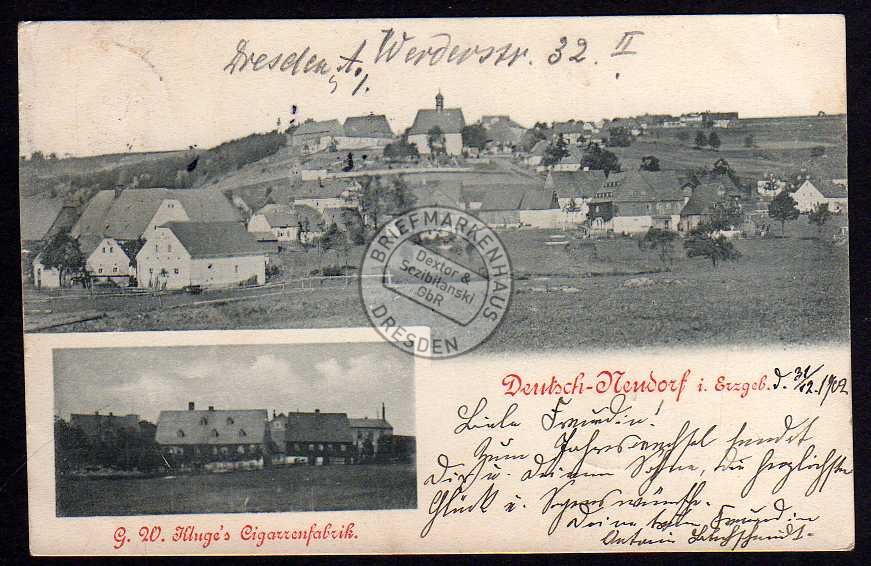 Dresden A. Werderstr. 32. II
BRIEFMARKENHAUS
Dextor &
Sczibilanski
GbR
DRESDEN
Deutsch-Neudorf i. Erzgeb. d. 31/12.1902
Liebe Freundin!
Zum Jahreswechsel sendet
Dir u. Deinem Sohne, die herzlichsten
Glück u. Segenswünsche.
Deine Freundin
G. W. Kluge's Cigarrenfabrik.